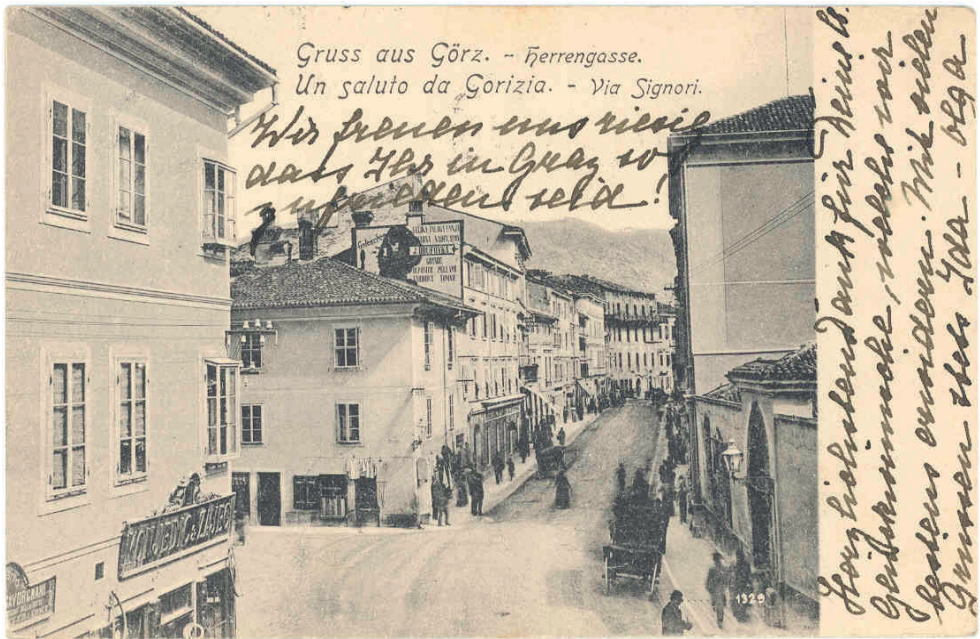 Gruss aus Görz. - Herrengasse.
Un saluto da Gorizia. - Via Signori.
Wir freuen uns riesig
dass Ihr in Graz so
zufrieden seid!
Herzlichsten Dank für Deine lb.
Glückwünsche, welche wir
bestens erwidern. Mit vielen
Grüssen stets Ida - Olga
GRANDE
DEPOSITO PELLAMI
1329